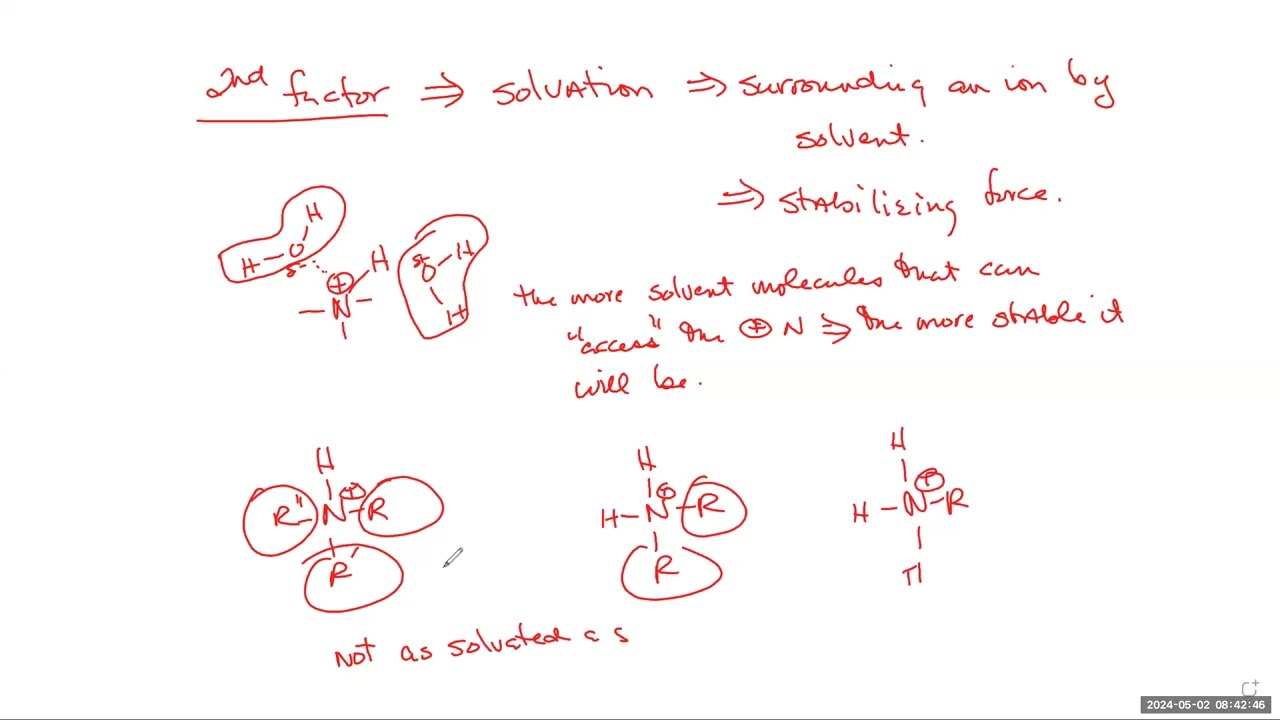 2nd factor ⇒ solvation ⇒ surrounding an ion by
solvent.
⇒ stabilizing force.
H
H-O
δ-
⊕ H
-N-
δ- O-H
H
the more solvent molecules that can
"access" the ⊕ N ⇒ the more stable it
will be.
H
R"-N⊕-R
R'
H
H-N⊕-R
R
H
H-N⊕-R
H
Not as solvated as
2024-05-02 08:42:46